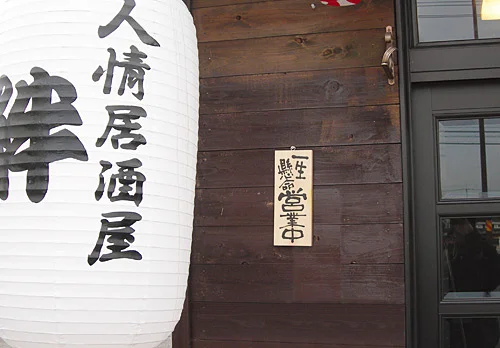 人情居酒屋
絆
一生
懸命
営業中